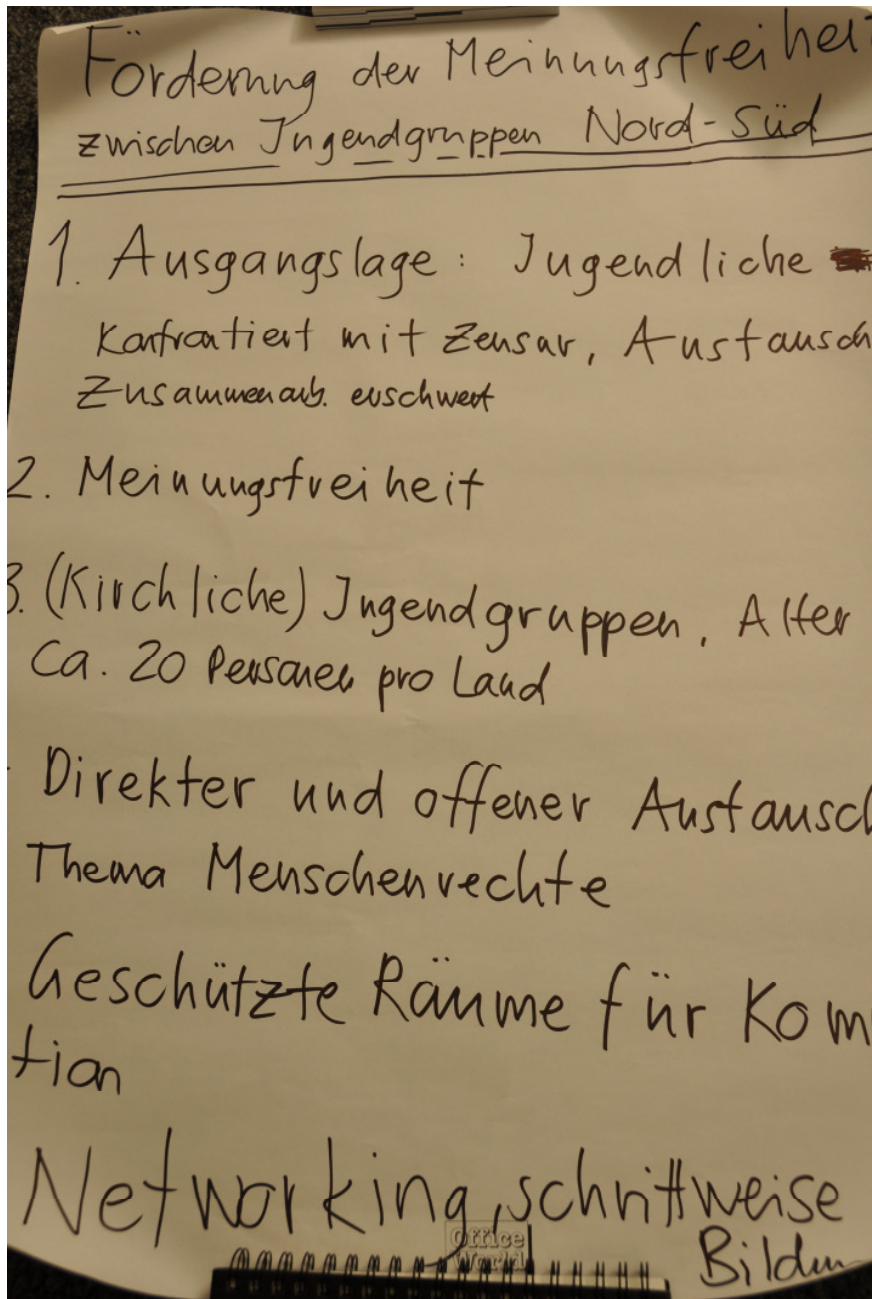 Förderung der Meinungsfreiheit
zwischen Jugendgruppen Nord-Süd
1. Ausgangslage: Jugendliche
Konfrontiert mit Zensur, Austausch
Zusammenarb. erschwert
2. Meinungsfreiheit
3. (Kirchliche) Jugendgruppen, Alter
Ca. 20 Personen pro Land
Direkter und offener Austausch
Thema Menschenrechte
Geschützte Räume für Kom
tion
Networking, schrittweise
Office
World